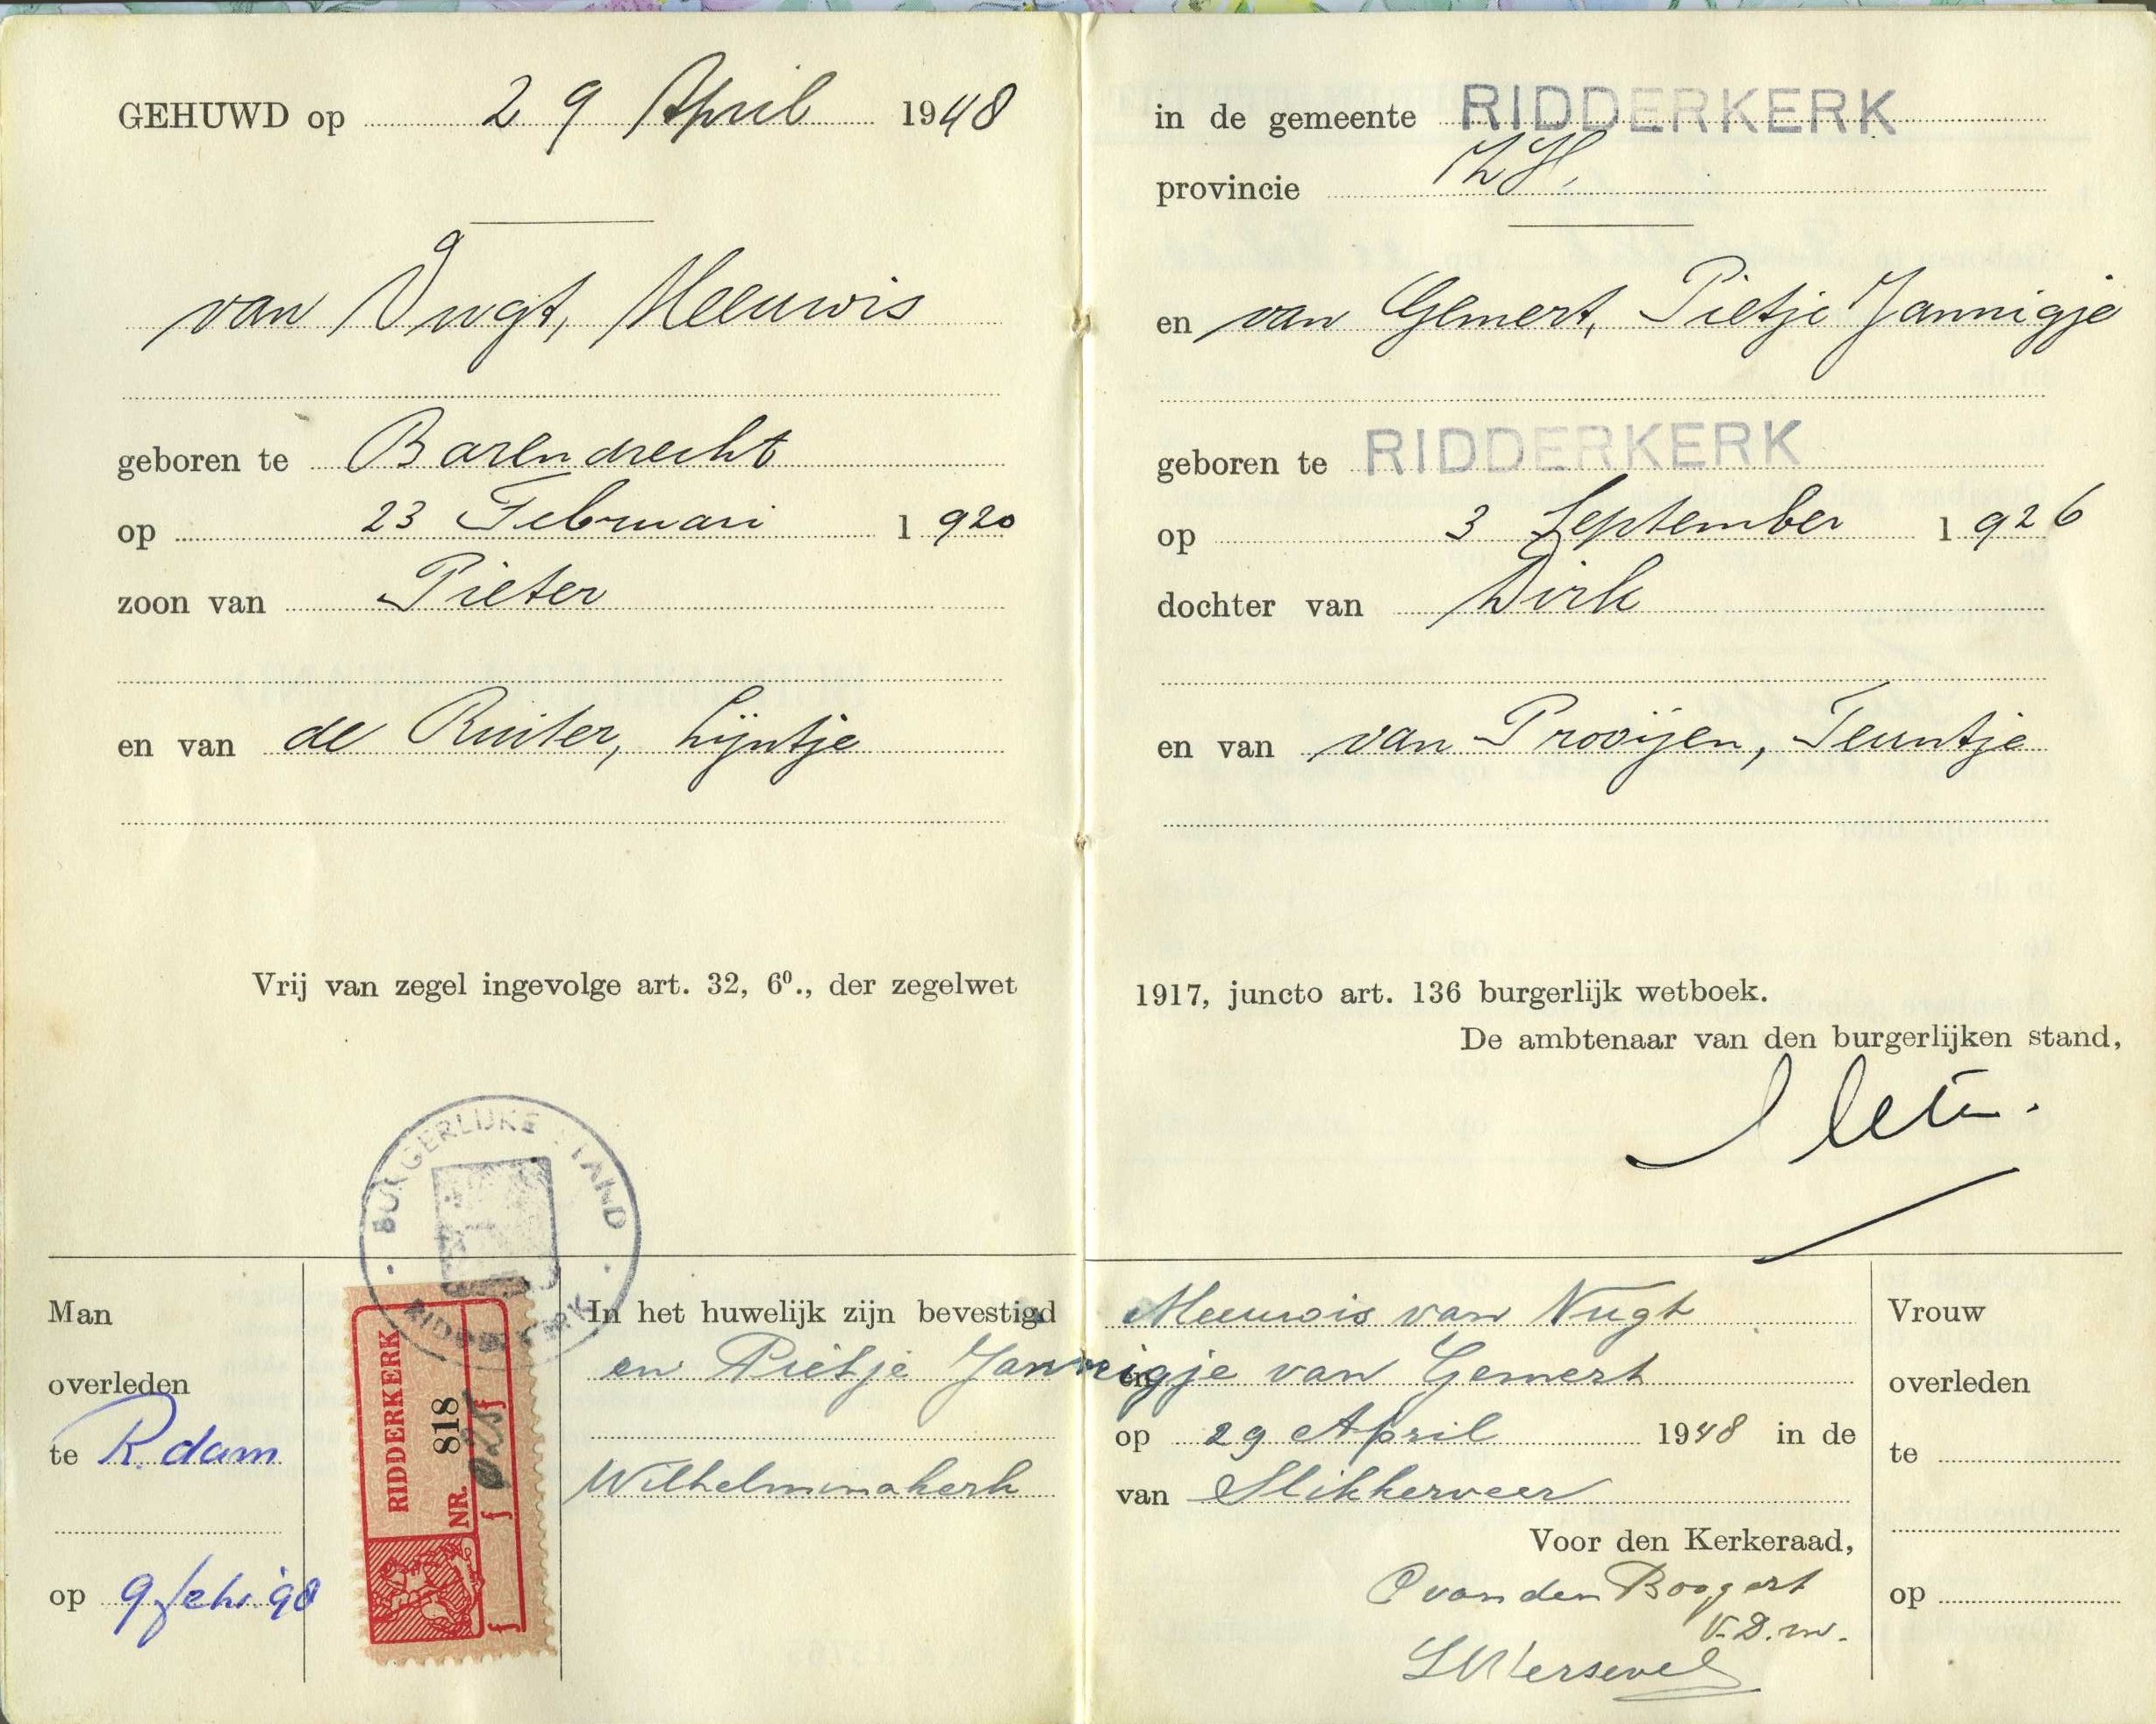 GEHUWD op 29 April 1948
van Vugt, Meeuwis
geboren te Barendrecht
op 23 Februari 1920
zoon van Pieter
en van de Ruiter, Lijntje
Vrij van zegel ingevolge art. 32, 6⁰., der zegelwet
BURGERLIJKE STAND
RIDDERKERK
Man
overleden
te R.dam
op 9 febr. '98
RIDDERKERK
NR. 818
f 025 f
f f
In het huwelijk zijn bevestigd
en Pietje Jannigje van Gemert
Wilhelminakerk
in de gemeente RIDDERKERK
provincie ZH.
en van Gemert, Pietje Jannigje
geboren te RIDDERKERK
op 3 September 1926
dochter van Dirk
en van van Prooijen, Teuntje
1917, juncto art. 136 burgerlijk wetboek.
De ambtenaar van den burgerlijken stand,
Meeuwis van Vugt
en
op 29 April 1948 in de
van Slikkerveer
Voor den Kerkeraad,
P van den Boogert
V.D.m.
Vrouw
overleden
te
op